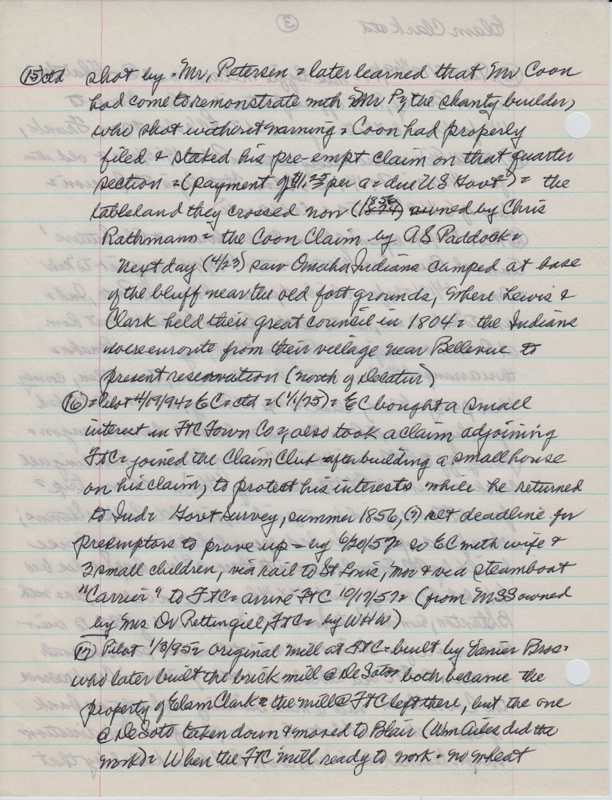 Elam Clark ctd
③
⑮ ctd shot by Mr. Petersen = later learned that Mr Coon
had come to remonstrate with Mr P, the shanty builder,
who shot without warning = Coon had properly
filed & staked his pre-empt claim on that quarter
section = (payment of $1.25 per a = due US Govt) = the
tableland they crossed now owned by Chris
Rathmann = the Coon Claim by AS Paddock =
Next day (4/23) saw Omaha Indians camped at base
of the bluff near the old fort grounds, where Lewis &
Clark held their great council in 1804 = the Indians
were enroute from their village near Bellevue to
present reservation (north of Decatur)
⑯ = Pilot 4/19/94 = EC = ctd = = EC bought a small
interest in FtC Town Co =, also took a claim adjoining
FtC = joined the Claim Club after building a small house
on his claim, to protest his interests while he returned
to Ind = Govt survey, summer 1856, (?) set deadline for
preemptors to prove up - by 6/30/57 = so EC with wife &
3 small children, via rail to St Louis, Mo & via steamboat
"Carrier" to FtC = arrive FtC 10/17/57 = (from MSS owned
by Mrs Dr Pettingill, FtC = by WHW)
⑰ Pilot 1/3/95 = original mill at FtC = built by Bros =
who later built the brick mill @ DeSoto both became the
property of Elam Clark = the mill @ FtC left there, but the one
@ DeSoto taken down & moved to Blair (Wm Ailes did the
work) = When the FtC mill ready to work = no wheat